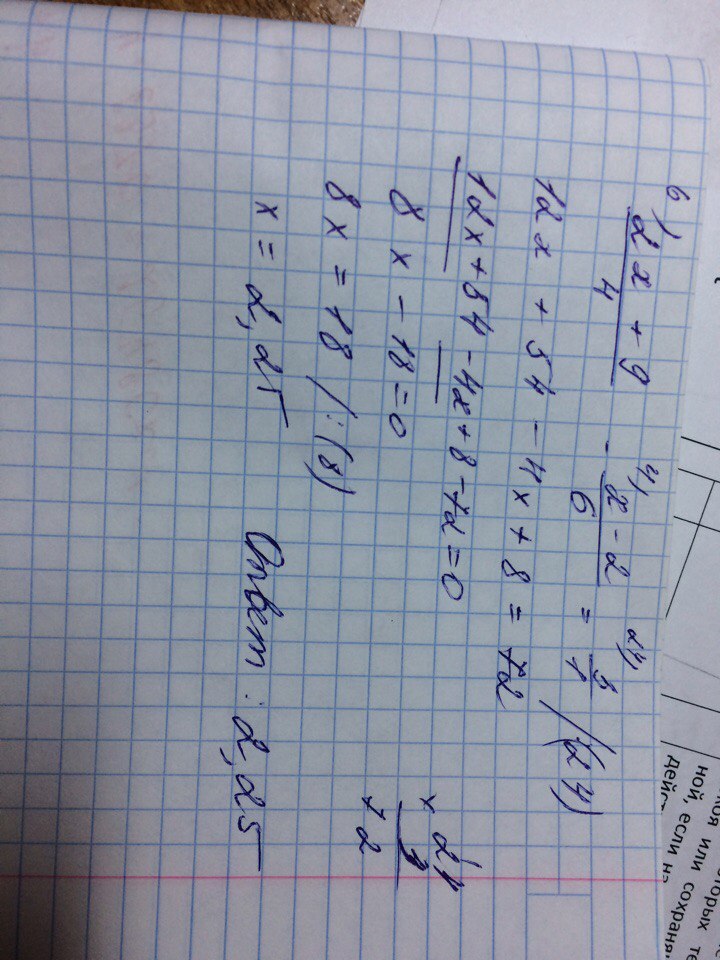 6) (2x + 9)/4 - (x - 2)/6 = 3/1 /(24)
4) 24)
12x + 54 - 4x + 8 = 72
12x + 54 - 4x + 8 - 72 = 0
8x - 18 = 0
8x = 18 /:(8)
x = 2,25
Ответ: 2,25
× 24
3
72
ной, если
сохраня